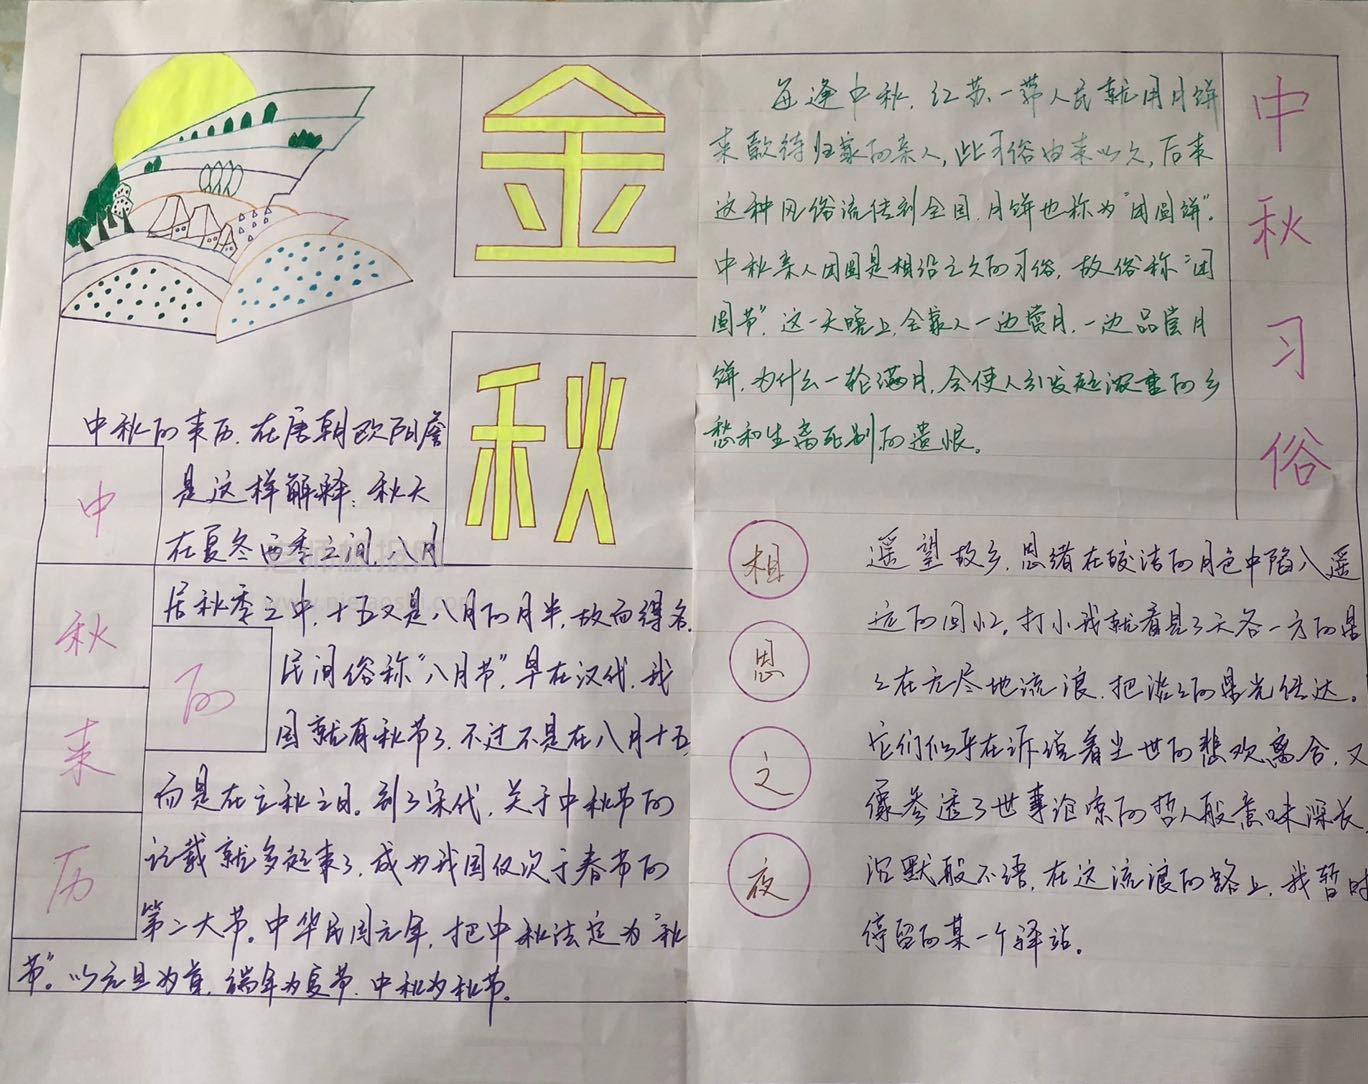 金
秋
中秋的来历
中秋的来历,在唐朝欧阳詹
是这样解释:秋天
在夏冬两季之间,八月
居秋季之中,十五又是八月的月半,故而得名.
民间俗称“八月节”,早在汉代,我
国就有秋节了,不过不是在八月十五
而是在立秋之日。到了宋代,关于中秋节的
记载就多起来了,成为我国仅次于春节的
第二大节。中华民国元年,把中秋法定为“秋
节”。以元旦为首,端午为夏节,中秋为秋节。
中秋习俗
每逢中秋,江苏一带人民就用月饼
来款待归家的亲人,此习俗由来以久,后来
这种风俗流传到全国,月饼也称为“团圆饼”.
中秋亲人团圆是相沿之久的习俗,故俗称“团
圆节”,这一天晚上,全家人一边赏月,一边品尝月
饼,为什么一轮满月,会使人引发起浓重的乡
愁和生离死别的遗恨。
相思之夜
遥望故乡,思绪在皎洁的月色中陷入遥
远的回忆,打小我就看见了天各一方的星
星在无尽地流浪,把淡淡的星光传达。
它们似乎在诉说着尘世的悲欢离合,又
像参透了世事沧凉的哲人般意味深长
沉默般不语,在这流浪的路上,我暂时
停留的某一个驿站。